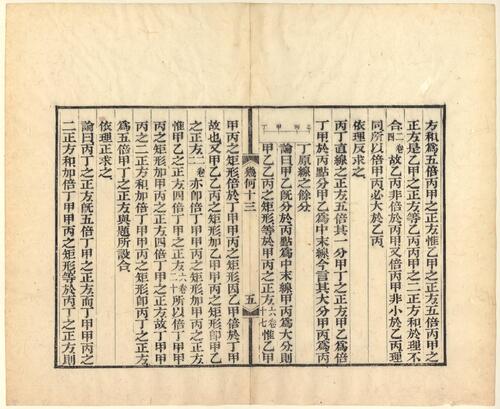 方和為五倍丙甲之正方惟乙甲之正方五倍丙甲之
正方是乙甲之正方等乙丙丙甲之二正方和於理不
合二卷四故乙丙非倍於丙甲又倍丙甲非小於乙丙理
同所以倍甲丙必大於乙丙
依理反求之
丙丁直線之正方五倍其一分甲丁之正方甲乙為倍
丁甲於丙點分甲乙為中末線今言其大分甲丙為丙
丁原線之餘分
乙丙甲丁
論曰甲乙既分於丙點為中末線甲丙為大分則
甲乙乙丙之矩形等於甲丙之正方六卷十七惟乙甲
幾何十三
五
甲丙之矩形倍於丁甲甲丙之矩形因乙甲倍於丁甲
故也又甲乙乙丙之矩形加乙甲甲丙之矩形即甲乙
之正方二卷二亦即倍丁甲甲丙之矩形加甲丙之正方
惟甲乙之正方四倍甲丁之正方六卷二十所以倍丁甲甲
丙之矩形加甲丙之正方四倍丁甲之正方故丁甲甲
丙之二正方和加倍丁甲甲丙之矩形即丙丁之正方
為五倍甲丁之正方與題所設合
依理正求之
論曰丙丁之正方既五倍丁甲之正方而丁甲甲丙之
二正方和加倍丁甲甲丙之矩形等於丙丁之正方則